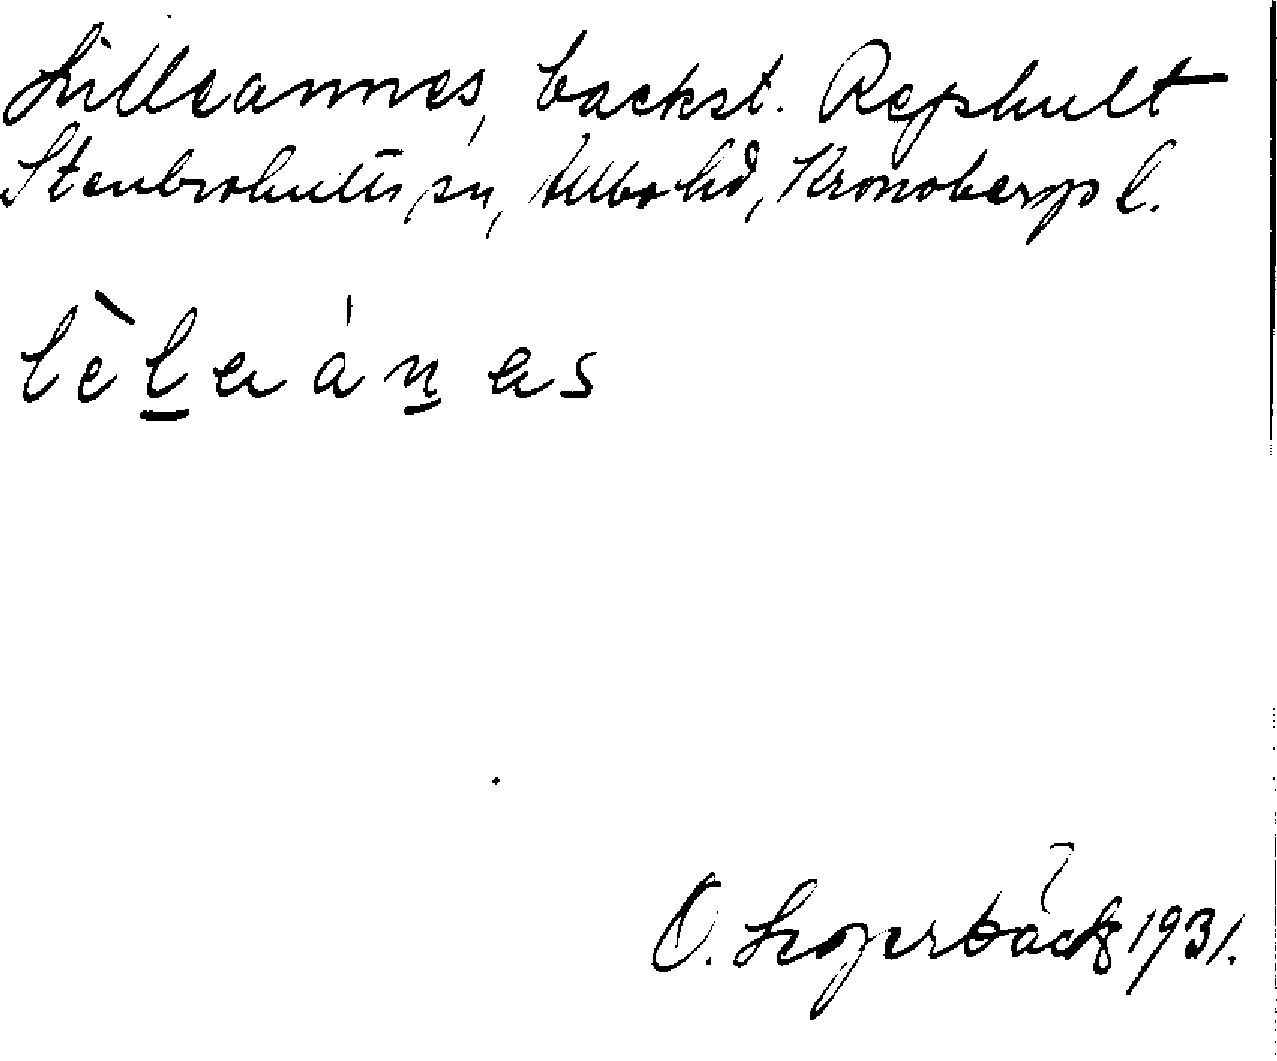 Lilleannes, backst. Repshult
Stenbrohults sn, Allbo hd, Kronobergs l.
lèleánes
O. Lagerbäck 1931.